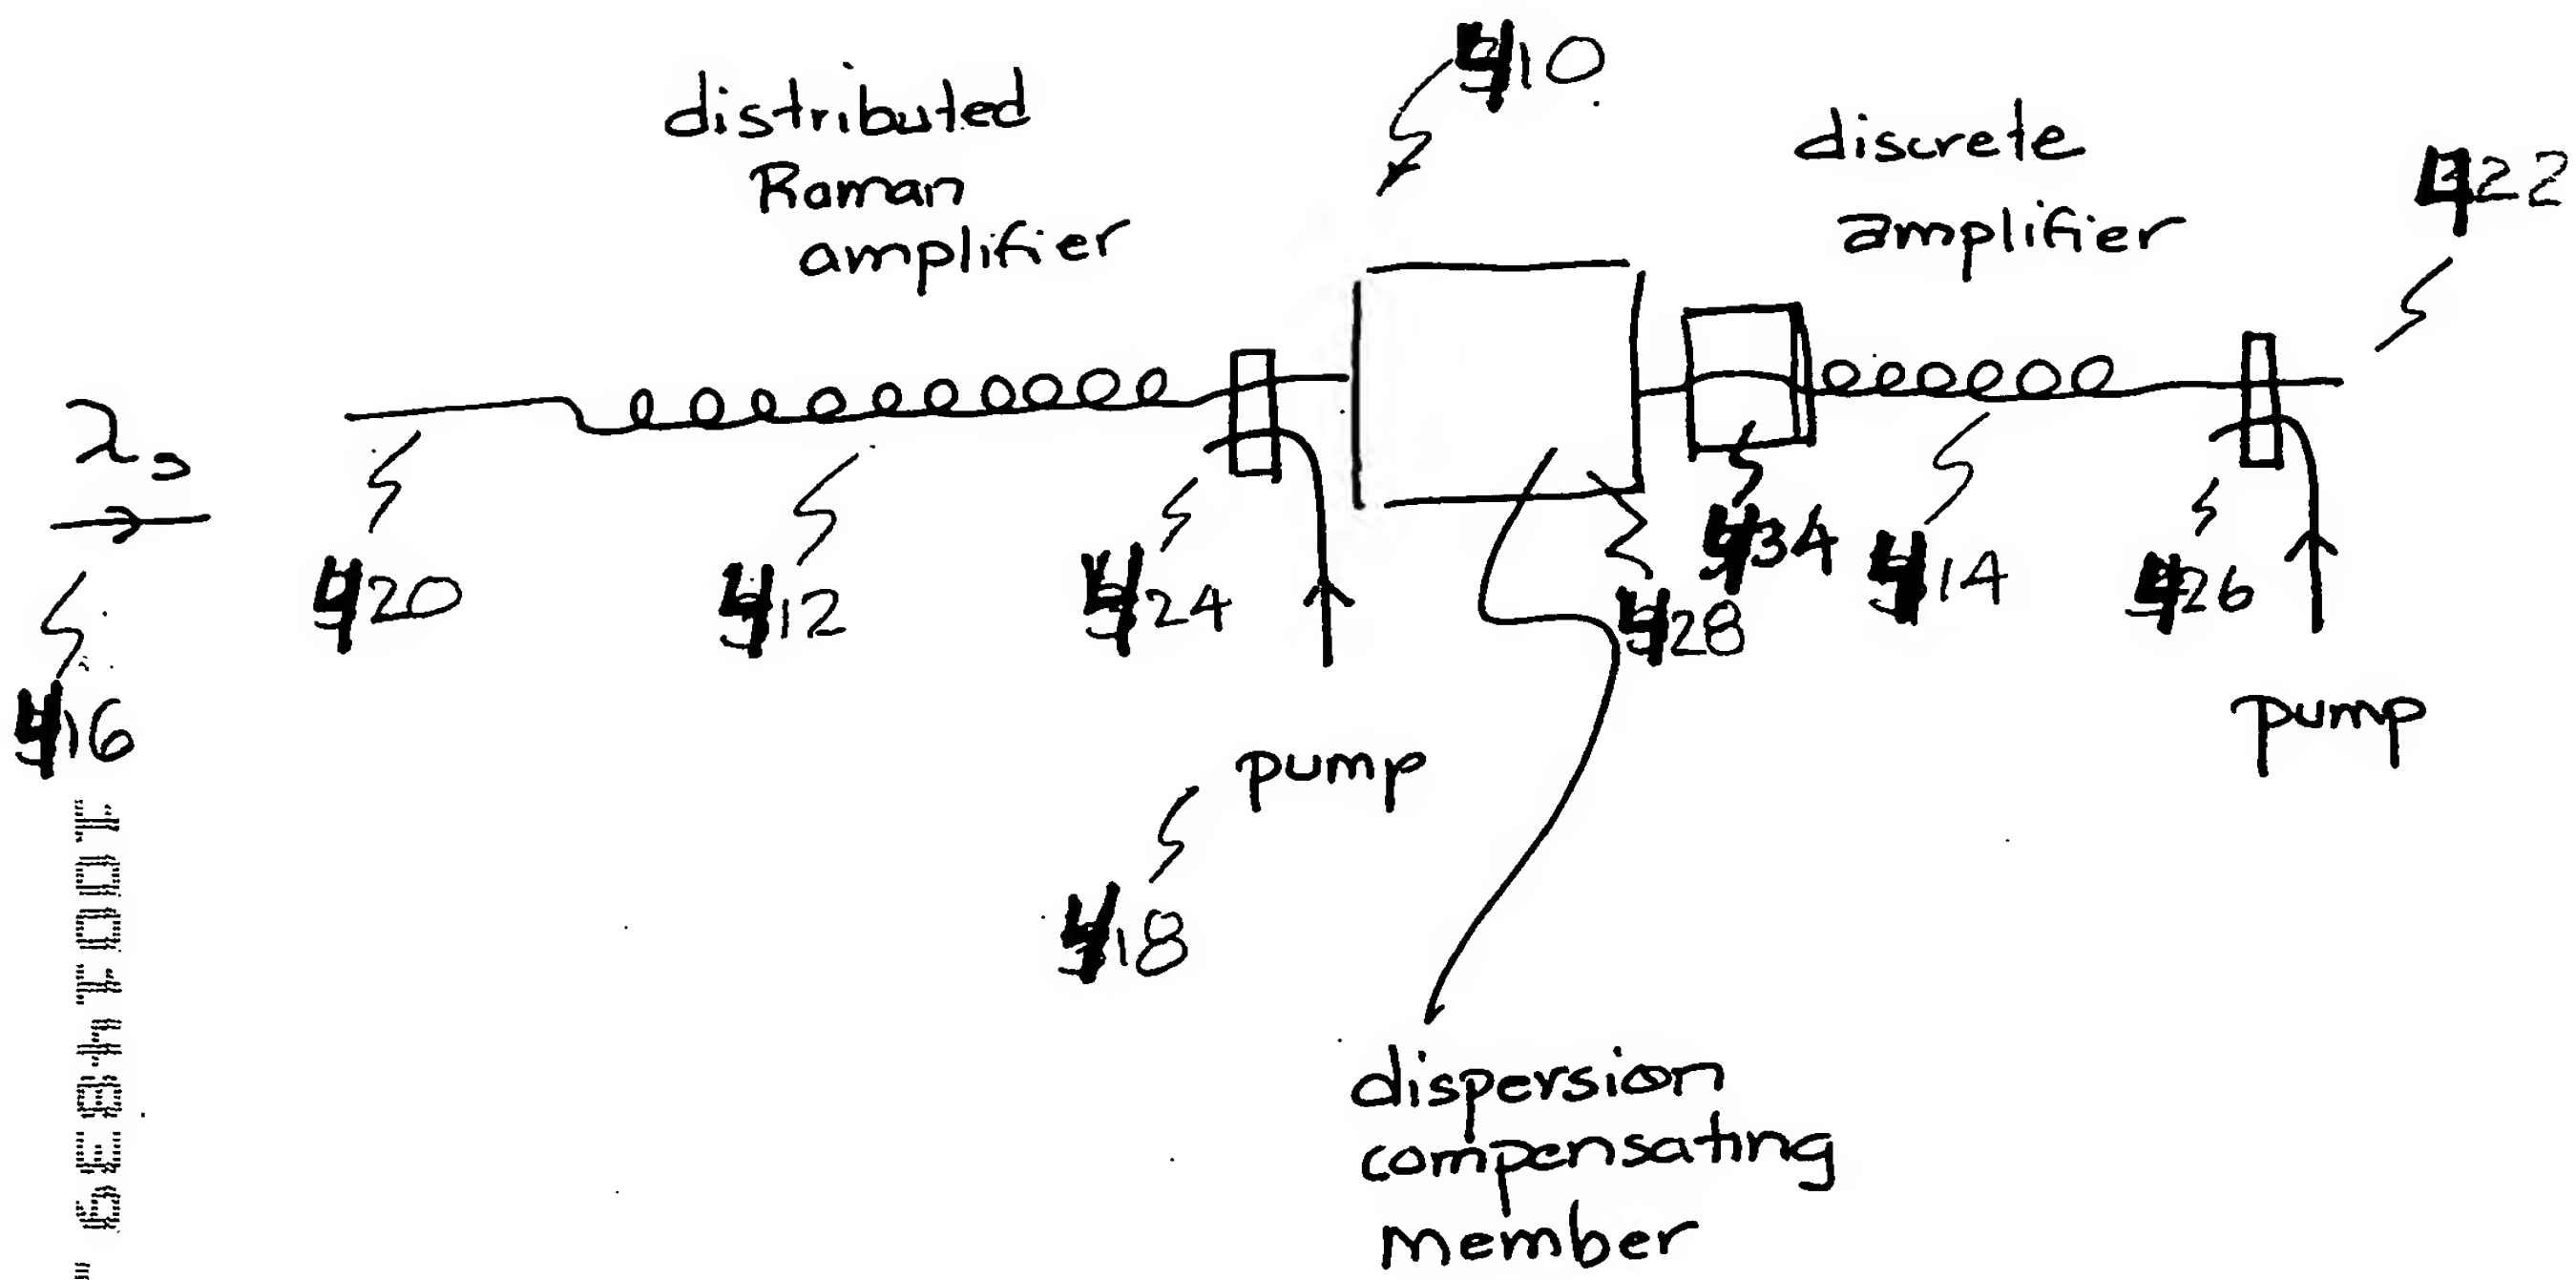 410
distributed
Raman
amplifier
discrete
amplifier
422
λs
420
412
424
428
434
414
426
416
pump
pump
418
dispersion
compensating
member